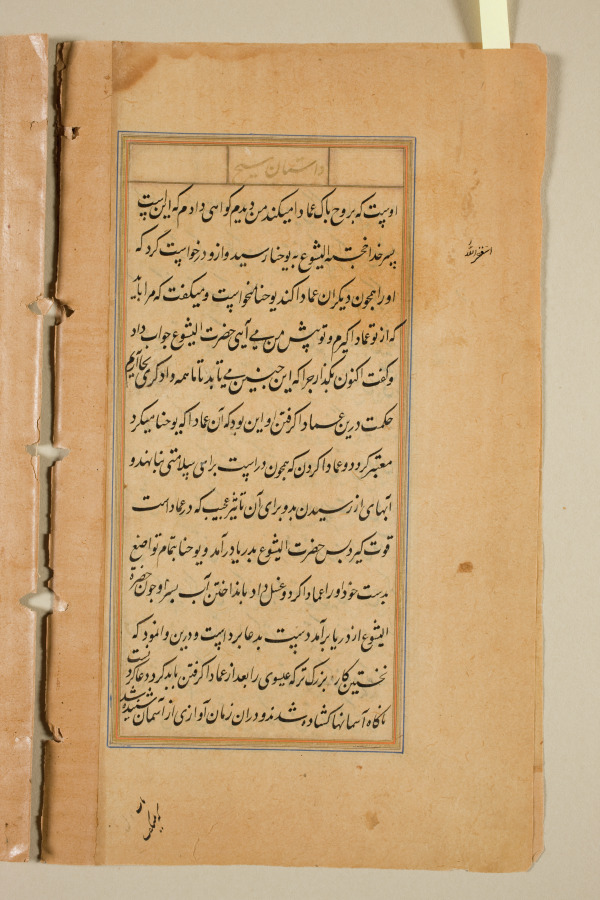 داستان مسیح
اوست که بروح پاک عمادا میکند من دیدم کواهی دادم که این است
پسر خدا الیشوع به یوحنا رسید و ازو درخواست کرد که
اورا همچون دیکران عمادا کند یوحنا نمیخواست و میکفت که مرا باید
که از تو عمادا کیرم و تو پیش من می آیی حضرت الیشوع جواب داد
و کفت اکنون بکذار چرا که این چنین می باید تا ما همه دادکری بجا آریم
حکمت درین عمادا کرفتن او این بود که آن عمادا که یوحنا میکرد
معتبر کردد و عمادا کردن که همچون در است برای سلامتی بنا نهد و
آبهای از رسیدن بدو برای آن تاثیر عجیب که در عمادا است
قوت کیرد پس حضرت الیشوع بدریا در آمد و یوحنا بتمام تواضع
بدست خود اورا عمادا کرد و غسل داد بانداختن آب بسر او چون حضرة
الیشوع از دریا برآمد دست بدعا برداشت و درین وا نمود که
نخستین کار بزرک تر که عیسوی را بعد از عمادا کرفتن باید کرد دعا کردنست
ناکاه آسمانها کشاده شدند و در ان زمان آوازی از آسمان شنیده شد
استغفر الله